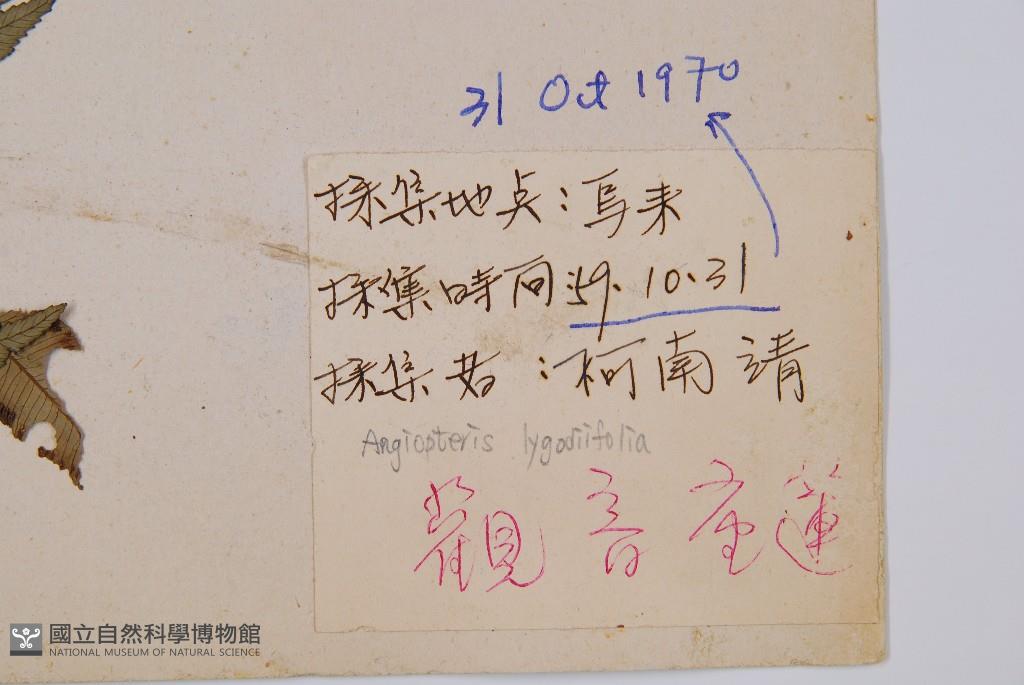 31 Oct 1970
採集地点：烏来
採集時间：59.10.31
採集者：柯南靖
Angiopteris lygodiifolia
觀音座蓮
國立自然科學博物館
NATIONAL MUSEUM OF NATURAL SCIENCE